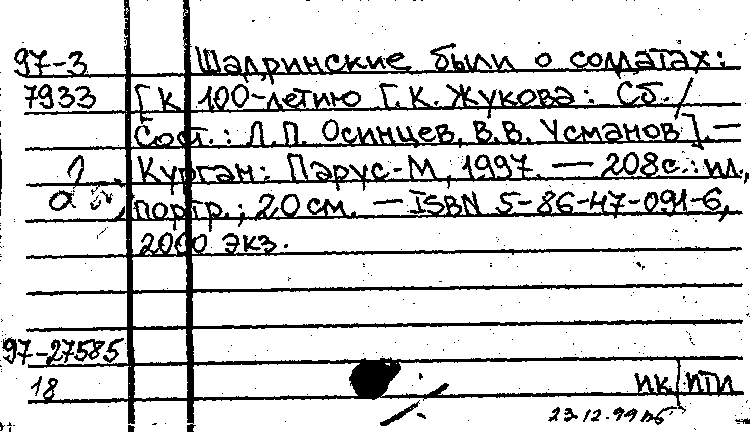 97-3 Шадринские были о солдатах:
7933 [К 100-летию Г.К. Жукова: Сб./
Сост.: Л.П. Осинцев, В.В. Усманов]. —
Курган: Парус-М, 1997. — 208с.: ил.,
портр.; 20 см. — ISBN 5-86-47-091-6,
2000 экз.
97-27585
18 ИК
23.12.99